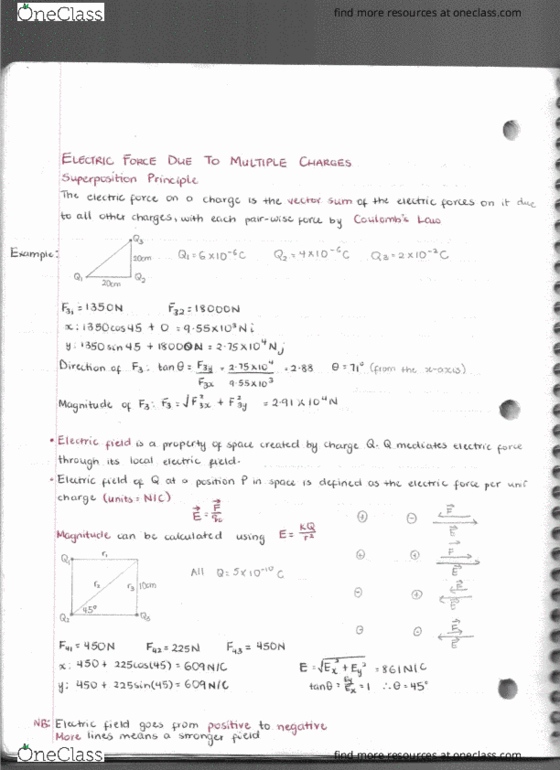 OneClass
find more resources at oneclass.com
ELECTRIC FORCE DUE TO MULTIPLE CHARGES
Superposition Principle
The electric force on a charge is the vector sum of the electric forces on it due
to all other charges, with each pair-wise force by Coulomb's Law
Example:
Q3
20cm
Q1
20cm
Q2
Q1 = 6 x 10⁻⁶C Q2 = 4 x 10⁻⁶C Q3 = 2 x 10⁻²C
F31 = 1350N F32 = 18000N
x: 1350cos45 + 0 = 9.55x10³N i
y: 1350sin45 + 18000N = 2.75x10⁴N j
Direction of F3: tanθ = F3y/F3x = 2.75x10⁴/9.55x10³ = 2.88 θ = 71° (from the x-axis)
Magnitude of F3: F3 = √F3x² + F3y² = 2.91 x 10⁴N
• Electric field is a property of space created by charge Q. Q mediates electric force
through its local electric field.
• Electric field of Q at a position P in space is defined as the electric force per unit
charge (units = N/C)
E = F/q0
Magnitude can be calculated using E = KQ/r²
Q1 r1
r2 r3 10cm
45°
Q2 Q3
All Q = 5x10⁻¹⁰C
F41 = 450N F42 = 225N F43 = 450N
x: 450 + 225cos(45) = 609N/C
y: 450 + 225sin(45) = 609N/C
E = √Ex² + Ey² = 861N/C
tanθ = Ey/Ex = 1 ∴ θ = 45°
NB: Electric field goes from positive to negative
More lines means a stronger field
OneClass
find more resources at oneclass.com